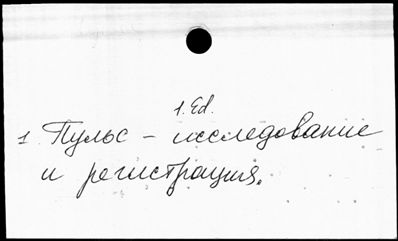 1. Ed.
1 Пульс – исследование
и регистрация.